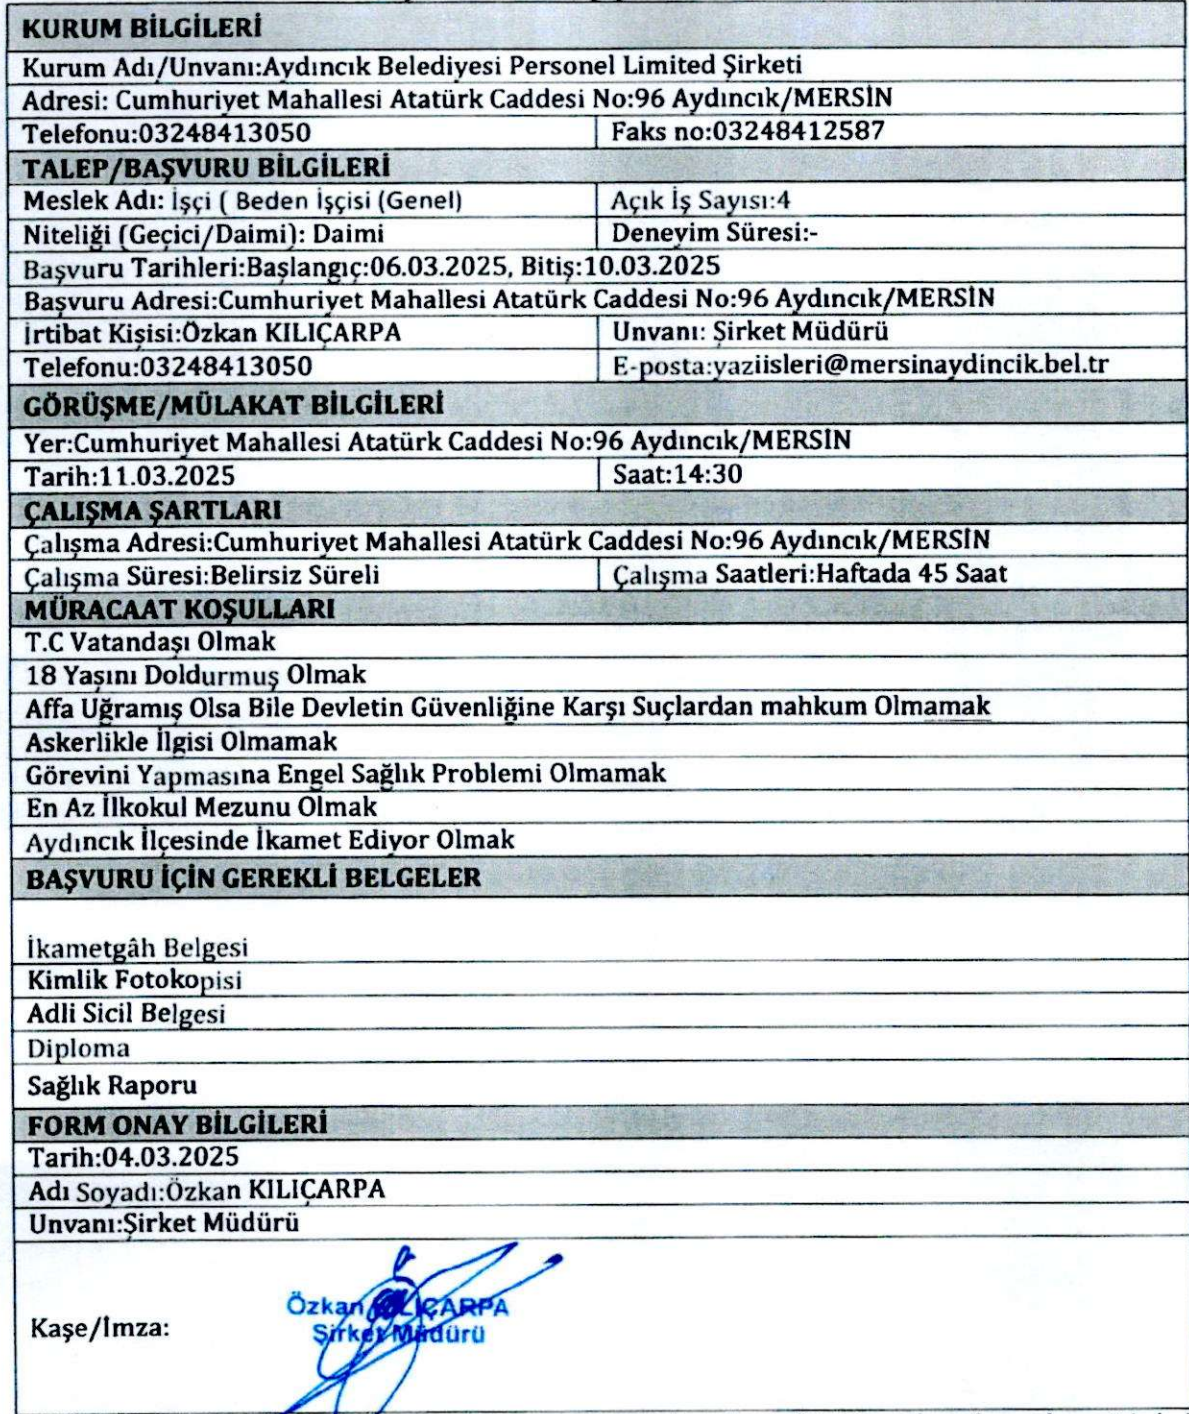 KURUM BİLGİLERİ
Kurum Adı/Unvanı:Aydıncık Belediyesi Personel Limited Şirketi
Adresi: Cumhuriyet Mahallesi Atatürk Caddesi No:96 Aydıncık/MERSİN
Telefonu:03248413050 Faks no:03248412587
TALEP/BAŞVURU BİLGİLERİ
Meslek Adı: İşçi ( Beden İşçisi (Genel) Açık İş Sayısı:4
Niteliği (Geçici/Daimi): Daimi Deneyim Süresi:-
Başvuru Tarihleri:Başlangıç:06.03.2025, Bitiş:10.03.2025
Başvuru Adresi:Cumhuriyet Mahallesi Atatürk Caddesi No:96 Aydıncık/MERSİN
İrtibat Kişisi:Özkan KILIÇARPA Unvanı: Şirket Müdürü
Telefonu:03248413050 E-posta:yaziisleri@mersinaydincik.bel.tr
GÖRÜŞME/MÜLAKAT BİLGİLERİ
Yer:Cumhuriyet Mahallesi Atatürk Caddesi No:96 Aydıncık/MERSİN
Tarih:11.03.2025 Saat:14:30
ÇALIŞMA ŞARTLARI
Çalışma Adresi:Cumhuriyet Mahallesi Atatürk Caddesi No:96 Aydıncık/MERSİN
Çalışma Süresi:Belirsiz Süreli Çalışma Saatleri:Haftada 45 Saat
MÜRACAAT KOŞULLARI
T.C Vatandaşı Olmak
18 Yaşını Doldurmuş Olmak
Affa Uğramış Olsa Bile Devletin Güvenliğine Karşı Suçlardan mahkum Olmamak
Askerlikle İlgisi Olmamak
Görevini Yapmasına Engel Sağlık Problemi Olmamak
En Az İlkokul Mezunu Olmak
Aydıncık İlçesinde İkamet Ediyor Olmak
BAŞVURU İÇİN GEREKLİ BELGELER
İkametgâh Belgesi
Kimlik Fotokopisi
Adli Sicil Belgesi
Diploma
Sağlık Raporu
FORM ONAY BİLGİLERİ
Tarih:04.03.2025
Adı Soyadı:Özkan KILIÇARPA
Unvanı:Şirket Müdürü
Özkan KILIÇARPA
Kaşe/İmza: Şirket Müdürü